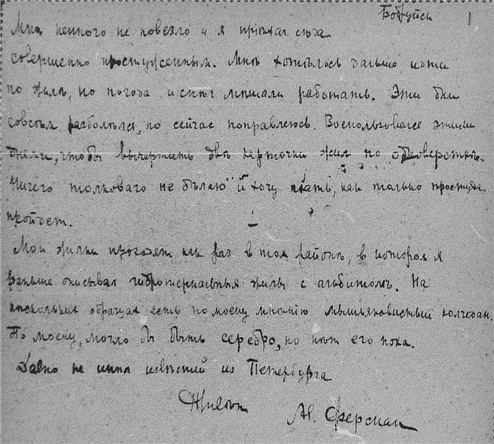 Бобруйск 1
Мне немного не повезло и я приехал сюда
совершенно простуженным. Мне хотелось дальше идти
по жиле, но погода и снег мешали работать. Эти дни
совсем разболелся, но сейчас поправляюсь. Воспользовался этими
днями, чтобы вычертить две карточки жил по
Ничего толковаго не делаю и хочу как только простуда
пройдет.
Мои жилки проходят как раз в том районе, в котором я
раньше описывал гидротермальныя жилы с альбитом. На
нескольких образцах есть по моему мнению мышьяковистый колчедан.
По моему, могло бы быть серебро, но нет его пока.
Давно не имел известий из Петербурга
А. Ферсман